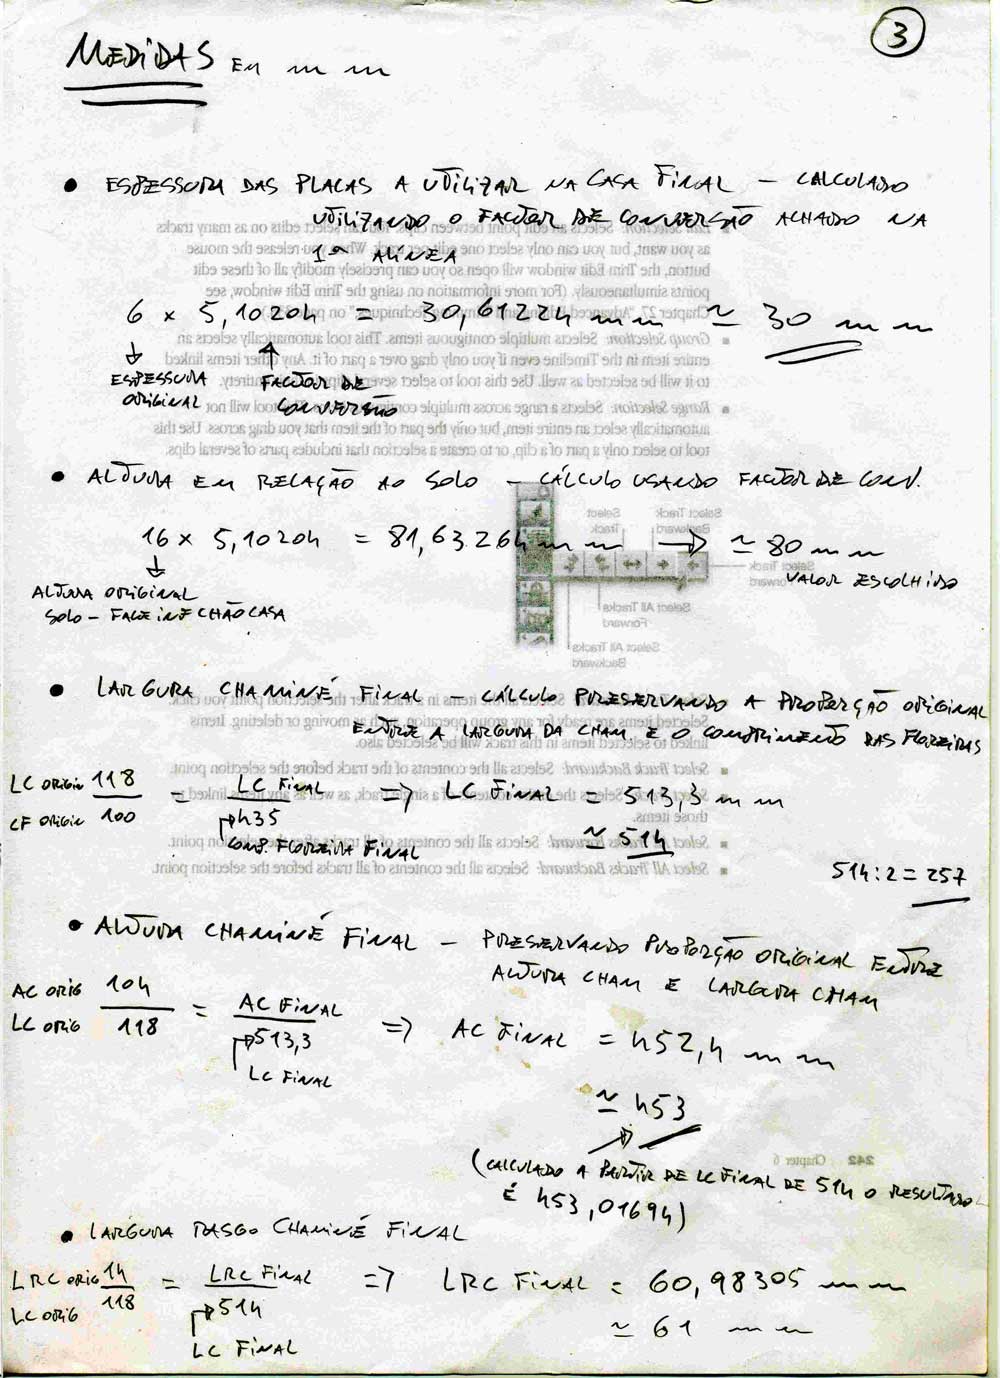 3
MEDIDAS EM mm
• ESPESSURA DAS PLACAS A UTILIZAR NA CASA FINAL – CALCULADO
UTILIZANDO O FACTOR DE CONVERSÃO ACHADO NA
1ª ALÍNEA
6 × 5,10204 = 30,61224 mm ≃ 30 mm
ESPESSURA ORIGINAL
FACTOR DE CONVERSÃO
• ALTURA EM RELAÇÃO AO SOLO – CÁLCULO USANDO FACTOR DE CONV.
16 × 5,10204 = 81,63264 mm → ≃ 80 mm
VALOR ESCOLHIDO
ALTURA ORIGINAL
SOLO – FACE INF CHÃO CASA
• LARGURA CHAMINÉ FINAL – CÁLCULO PRESERVANDO A PROPORÇÃO ORIGINAL
ENTRE A LARGURA DA CHAM E O COMPRIMENTO DAS FLOREIRAS
LC ORIGIN 118 = LC FINAL => LC FINAL = 513,3 mm
CF ORIGIN 100 435 ≃ 514
COMP. FLOREIRA FINAL
514:2 = 257
• ALTURA CHAMINÉ FINAL – PRESERVANDO PROPORÇÃO ORIGINAL ENTRE
ALTURA CHAM E LARGURA CHAM
AC ORIG 104 = AC FINAL => AC FINAL = 452,4 mm
LC ORIG 118 513,3
LC FINAL
≃ 453
(CALCULADO A PARTIR DE LC FINAL DE 514 O RESULTADO
É 453,01694)
• LARGURA RASGO CHAMINÉ FINAL
LRC ORIG 14 = LRC FINAL => LRC FINAL = 60,98305 mm
LC ORIG 118 514 ≃ 61 mm
LC FINAL